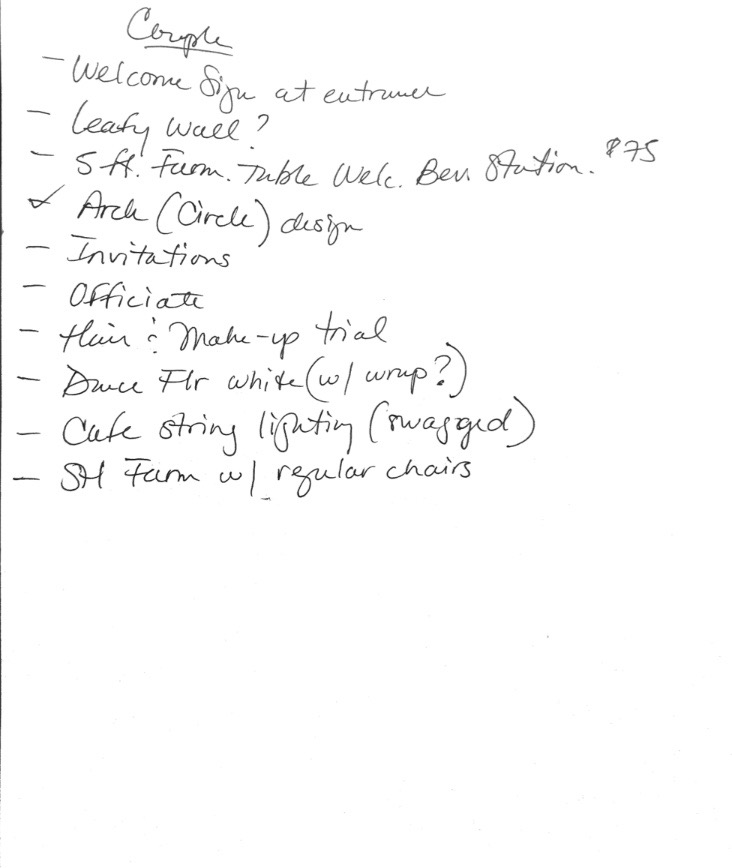 Couple
- Welcome Sign at entrance
- Leafy Wall?
- 5 ft. Farm. Table Welc. Bev. Station. $75
✓ Arch (Circle) design
- Invitations
- Officiate
- Hair & Make-up trial
- Dance Flr white (w/ wrap?)
- Cafe string lighting (swagged)
- SH Farm w/ regular chairs